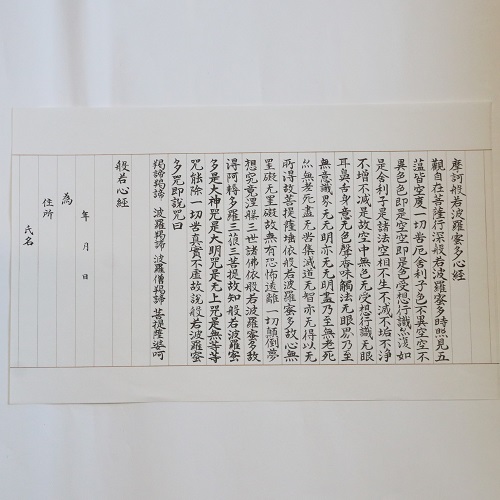 摩訶般若波羅蜜多心経
観自在菩薩行深般若波羅蜜多時照見五
蘊皆空度一切苦厄舎利子色不異空空不
異色色即是空空即是色受想行識亦復如
是舎利子是諸法空相不生不滅不垢不浄
不増不減是故空中無色无受想行識无眼
耳鼻舌身意无色聲香味觸法无眼界乃至
無意識界无无明亦无无明盡乃至無老死
亦無老死盡无苦集滅道无智亦无得以无
所得故菩提薩埵依般若波羅蜜多故心無
罣礙无罣礙故無有恐怖遠離一切顛倒夢
想究竟涅槃三世諸佛依般若波羅蜜多故
得阿耨多羅三藐三菩提故知般若波羅蜜
多是大神咒是大明咒是无上咒是無等等
咒能除一切苦真實不虚故說般若波羅蜜
多咒即說咒曰
羯諦羯諦 波羅羯諦 波羅僧羯諦 菩提薩婆訶
般若心経
為
年 月 日
住所
氏名